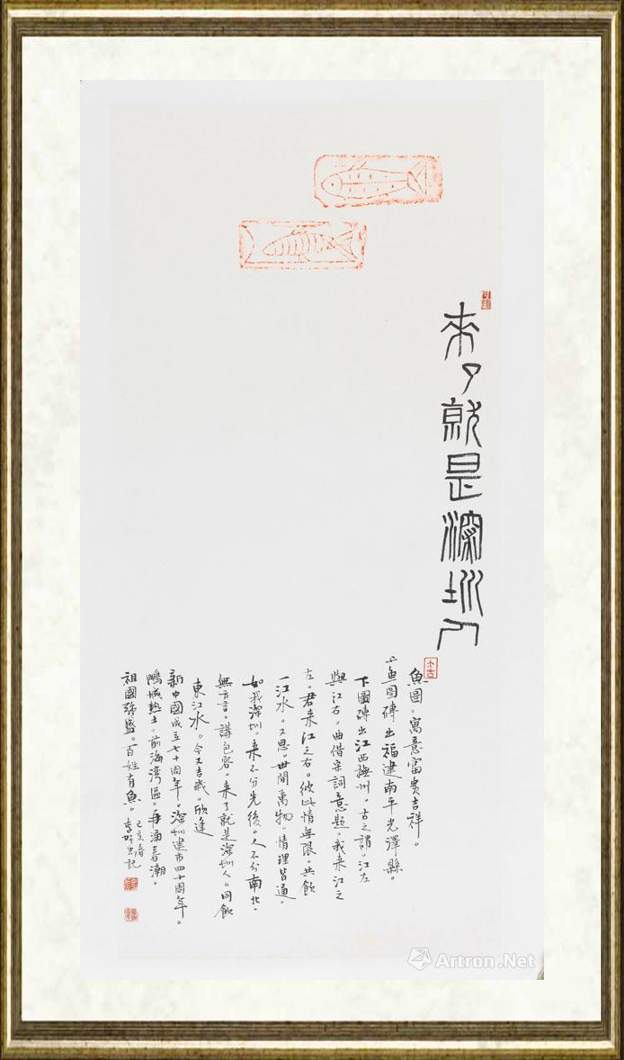 来了就是深圳人
魚图，寓意富贵吉祥。
上鱼图磚出福建南平光澤縣。
下圖磚出江西撫州。古之謂，江左
與江右，曲借宋詞意題，我来江之
左，君来江之右。彼此情無限，共飲
一江水。又思，世間萬物，情理皆通，
如我深圳，来不分先後，人不分南北，
無方言，講包容，来了就是深圳人。同飲
東江水。今又吉歲，欣逢
新中國成立七十周年。深圳建市四十周年。
鵬城熱土，前海湾區，再涌春潮。
祖國强盛。百姓有魚。
己亥
記
Artron.Net